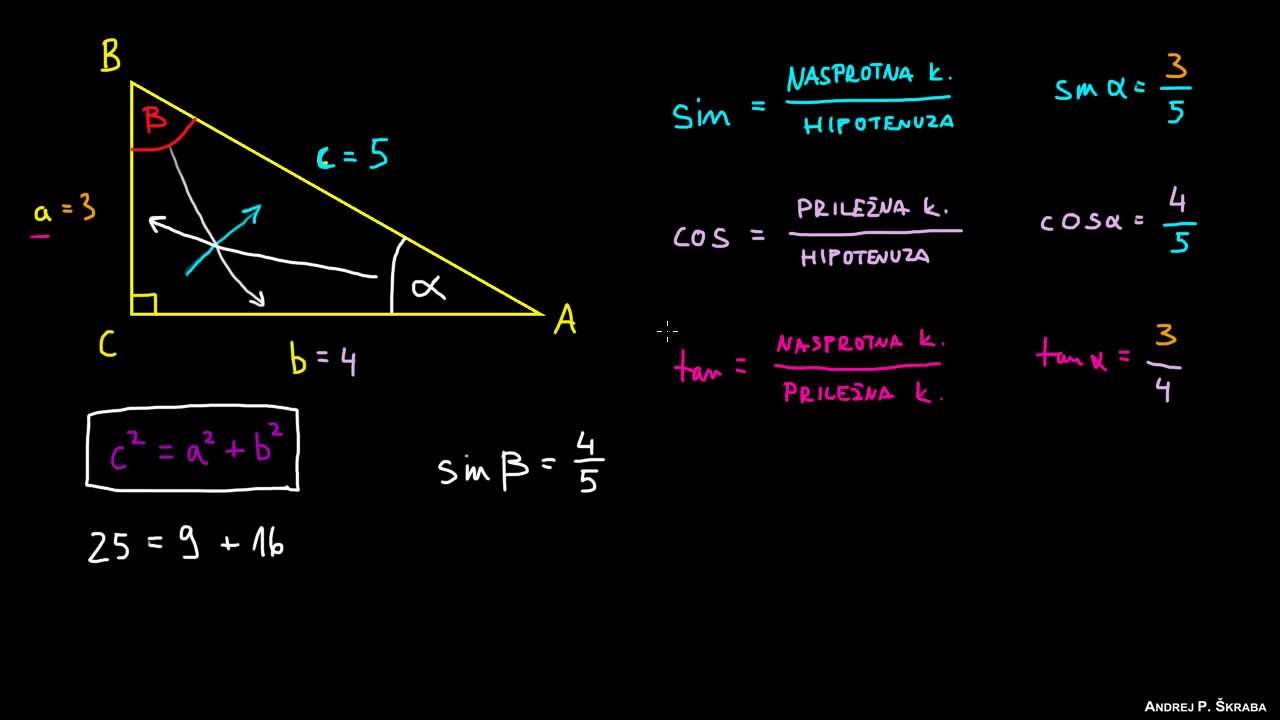 B
β
c = 5
a = 3
α
C
A
b = 4
c² = a² + b²
25 = 9 + 16
sin β = 4/5
sin = NASPROTNA k. / HIPOTENUZA
sin α = 3/5
cos = PRILEŽNA k. / HIPOTENUZA
cos α = 4/5
tan = NASPROTNA k. / PRILEŽNA k.
tan α = 3/4
ANDREJ P. ŠKRABA